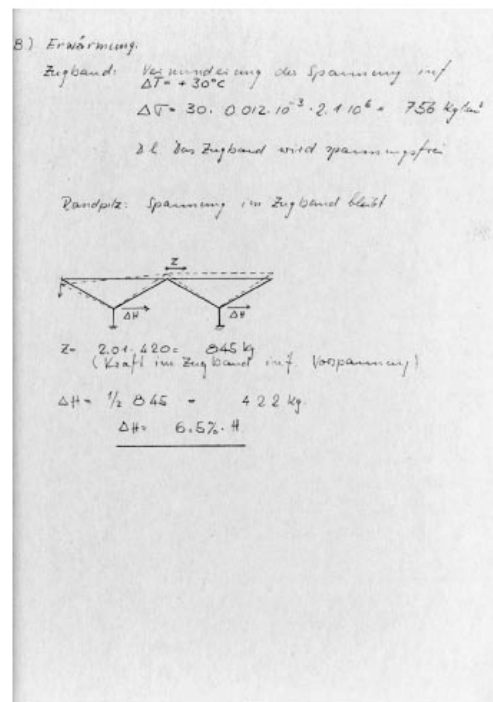 B) Erwärmung.
Zugband: Verminderung der Spannung inf
ΔT = +30°C
Δσ = 30 · 0.012 · 10⁻³ · 2.1 10⁶ = 756 Kg/cm²
D.h. Das Zugband wird spannungsfrei
Randpilz: Spannung im Zugband bleibt
Z
ΔH ΔH
Z = 2.01 · 420 = 845 kg
(Kraft im Zugband inf. Vorspannung)
ΔH = 1/2 845 = 422 kg.
ΔH = 6.5% · H